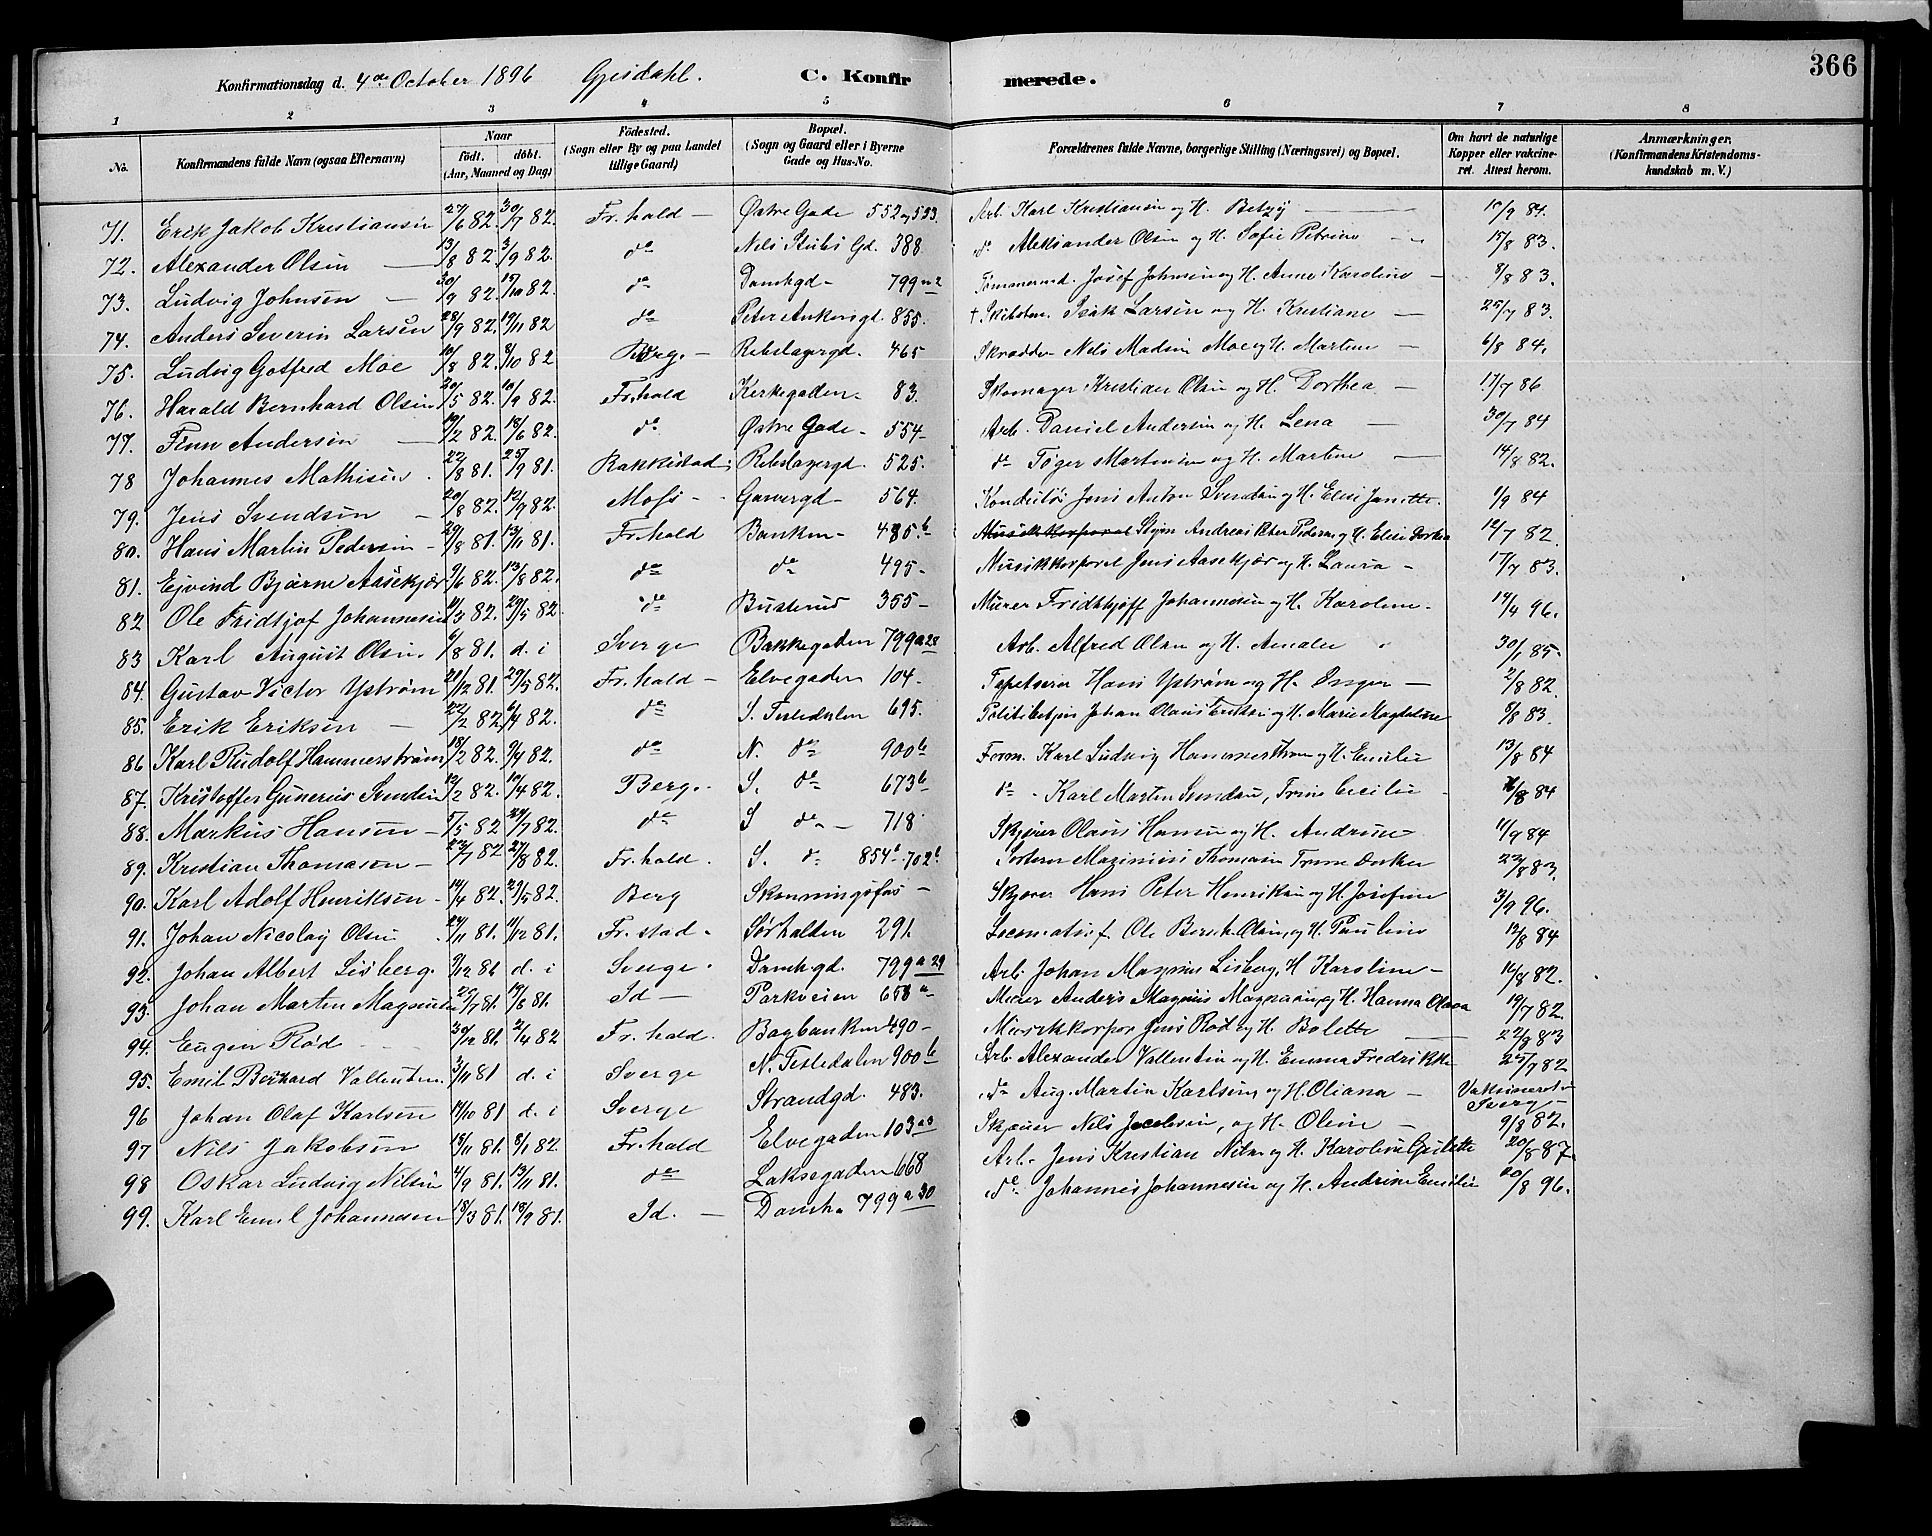 366
Konfirmationsdag d. 4de October 1896 Gjesdahl. C. Konfirmerede.
1 2 3 4 5 6 7 8
No. Konfirmandens fulde Navn (ogsaa Efternavn) Naar födt. döbt. (Aar, Maaned og Dag) Födested. (Sogn eller By og paa Landet tillige Gaard) Bopæl. (Sogn og Gaard eller i Byerne Gade og Hus-No. Forældrenes fulde Navne, borgerlige Stilling (Næringsvei) og Bopæl. Om havt de naturlige Kopper eller vakcineret. Attest herom. Anmærkninger. (Konfirmandens Kristendomskundskab m. V.)
71. Erik Jakob Kristiansen 27/6 82. 30/7 82. Fr.hald - Østre Gade 552 og 553. Arb. Karl Kristiansen og H. Betzy - 17/9 84.
72. Alexander Olsen 13/8 82. 3/9 82. do Nils Stubs Gd. 388. do Aleksander Olsen og H. Sofie Petrine 15/8 83.
73. Ludvig Johnsen - 30/7 82. 15/10 82. do Damhgd - 799 a 2 Tømmermd. Josef Johnsen og H. Anne Karoline - 8/8 83.
74. Anders Severin Larsen 28/9 82. 19/11 82 do Peter Ankersgd. 855. + Isak Larsen og H. Kristiane - 25/7 83.
75. Ludvig Gotfred Moe 10/8 82. 8/10 82 Berg. - Rebslagergd. 465 Skrædder Nils Madsen Moe og H. Martine - 6/8 84.
76. Harald Bernhard Olsen 20/5 82. 10/9 82. Fr.hald Kirkegaden 83. Skomager Kristian Olsen og H. Dorthea - 17/7 86
77. Finn Andersen - 19/2 82. 18/6 82. do Østre Gade - 554 - Arb. Daniel Andersen og H. Lena - 30/7 84
78 Johannes Mathisen. 22/8 81. 25/9 81. Rakkestad; Rebslagergd. 525. do Tøger Martinsen og H. Martine - 14/8 82.
79. Jens Svendsen - 20/8 82. 12/9 82. Moss - Garvergd - 564. Konduktør Jens Anton Svendsen og H. Elise Janette. 1/9 84
80. Hans Martin Pedersen - 29/8 81. 13/11 81. Fr.hald Banken - 485 b - Musikkorporal Andreas Peter Pedersen og H. Elise Dorthea 12/7 82.
81. Ejvind Bjarne Aasekjær 9/6 82. 13/8 82. do do 495 - Musikkorporal Jens Aasekjær og H. Laura - 17/7 83.
82 Ole Fridtjof Johannesen 11/3 82. 29/5 82. do Busterud 355 - Murer Fridthjoff Johannesen og H. Karoline. 14/4 96.
83 Karl August Olsen. 6/8 81. d. i Sverge Bakkegaden 799 a 28 Arb. Alfred Olsen og H. Amalie 30/1 85.
84. Gustav Victor Ystrøm 21/12 81. 29/5 82. Fr.hald - Elvegaden 104. Tapetserer Hans Ystrøm og H. Inger - 2/8 82.
85. Erik Eriksen - 22/2 82. 6/4 82. do S. Tistedalen 695. Politibetjen Johan Olaus Eriksen og H. Marie Magdalene 8/8 83.
86 Karl Rudolf Hammerstrøm 18/2 82. 9/4 82. do N. do 900 b Form. Karl Ludvig Hammerstrøm og H. Emilie 13/8 84
87. Kristoffer Gunerius Sundin 12/2 82. 10/4 82. Berg. S. do 673 b do - Karl Martin Sundin, Trine Cecilie /8 84
88. Markus Hansen - 5/5 82 24/7 82. do S do - 718 Skjærer Olaus Hansen og H. Andrine - 11/9 84
89. Kristian Thomasen - 23/7 82 27/8 82. Fr.hald. S. do 854 b - 702 b. Sorterer Maximius Thomasen Trine Dorthea 22/8 83.
90. Karl Adolf Henriksen - 14/4 82. 29/5 82. Berg Skonningsfos - Skjærer Hans Peter Henriksen og H. Josefine 3/9 96.
91. Johan Nicolay Olsen 24/11 81. 11/12 81. Fr.stad - Sørhalden 291. Locomotivf. Ole Bernh. Olsen, og H. Pauline 12/8 84
92. Johan Albert Lisberg. 9/12 81 d. i Sverge. Damhgd. 799 a 29 Arb. Johan Magnus Lisberg, H. Karoline - 16/8 82.
93. Johan Marten Magnusen 25/7 81. 14/8 81. Id - Parkveien 658 a - Murer Anders Magnus Magnusen og H. Hanna Olava 19/7 82.
94. Eugen Rød - - 30/12 81. 2/4 82 Fr.hald. Bagbanken 490 - Musikkorpor. Jens Rød og H. Bolette 22/8 83
95. Emil Berhard Vallentin. 3/11 81 d. i Sverge N. Tistedalen 900 b Arb. Alexander Vallentin og H. Emma Fredrikke 25/7 82
96 Johan Olaf Karlsen 14/10 81 d. i Sverge Strandgd. 483. do Aug. Martin Karlsen, og H. Oliana - Vaksineret i Sverg -
97 Nils Jakobsen 13/11 81. 8/1 82. Fr.hald Elvegaden 103 a Skjærer Nils Jacobsen, og H. Oline - 9/8 82.
98 Oskar Ludvig Nilsen 4/9 81. 13/11 81. do Laksegaden 668 Arb. Jens Kristian Nilsen og H. Karoline 20/8 87.
99. Karl Emil Johannesen 18/3 81. 18/9 81. Id. - Damh. 799 a 30 do Johannes Johannesen og H. Andrine Emilie 20/8 96.